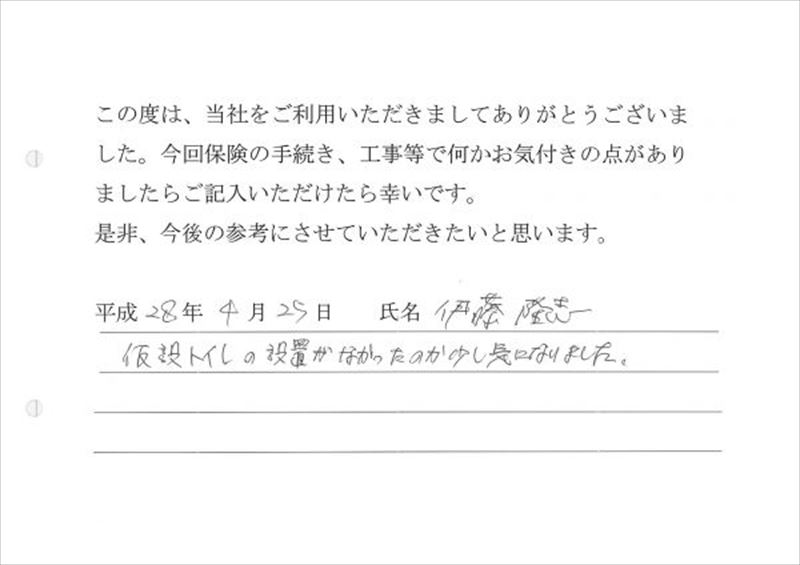 この度は、当社をご利用いただきましてありがとうございま
した。今回保険の手続き、工事等で何かお気付きの点があり
ましたらご記入いただけたら幸いです。
是非、今後の参考にさせていただきたいと思います。
平成 28年 4月 25日 氏名 伊藤 隆志
仮設トイレの設置がなかったのが少し気になりました。